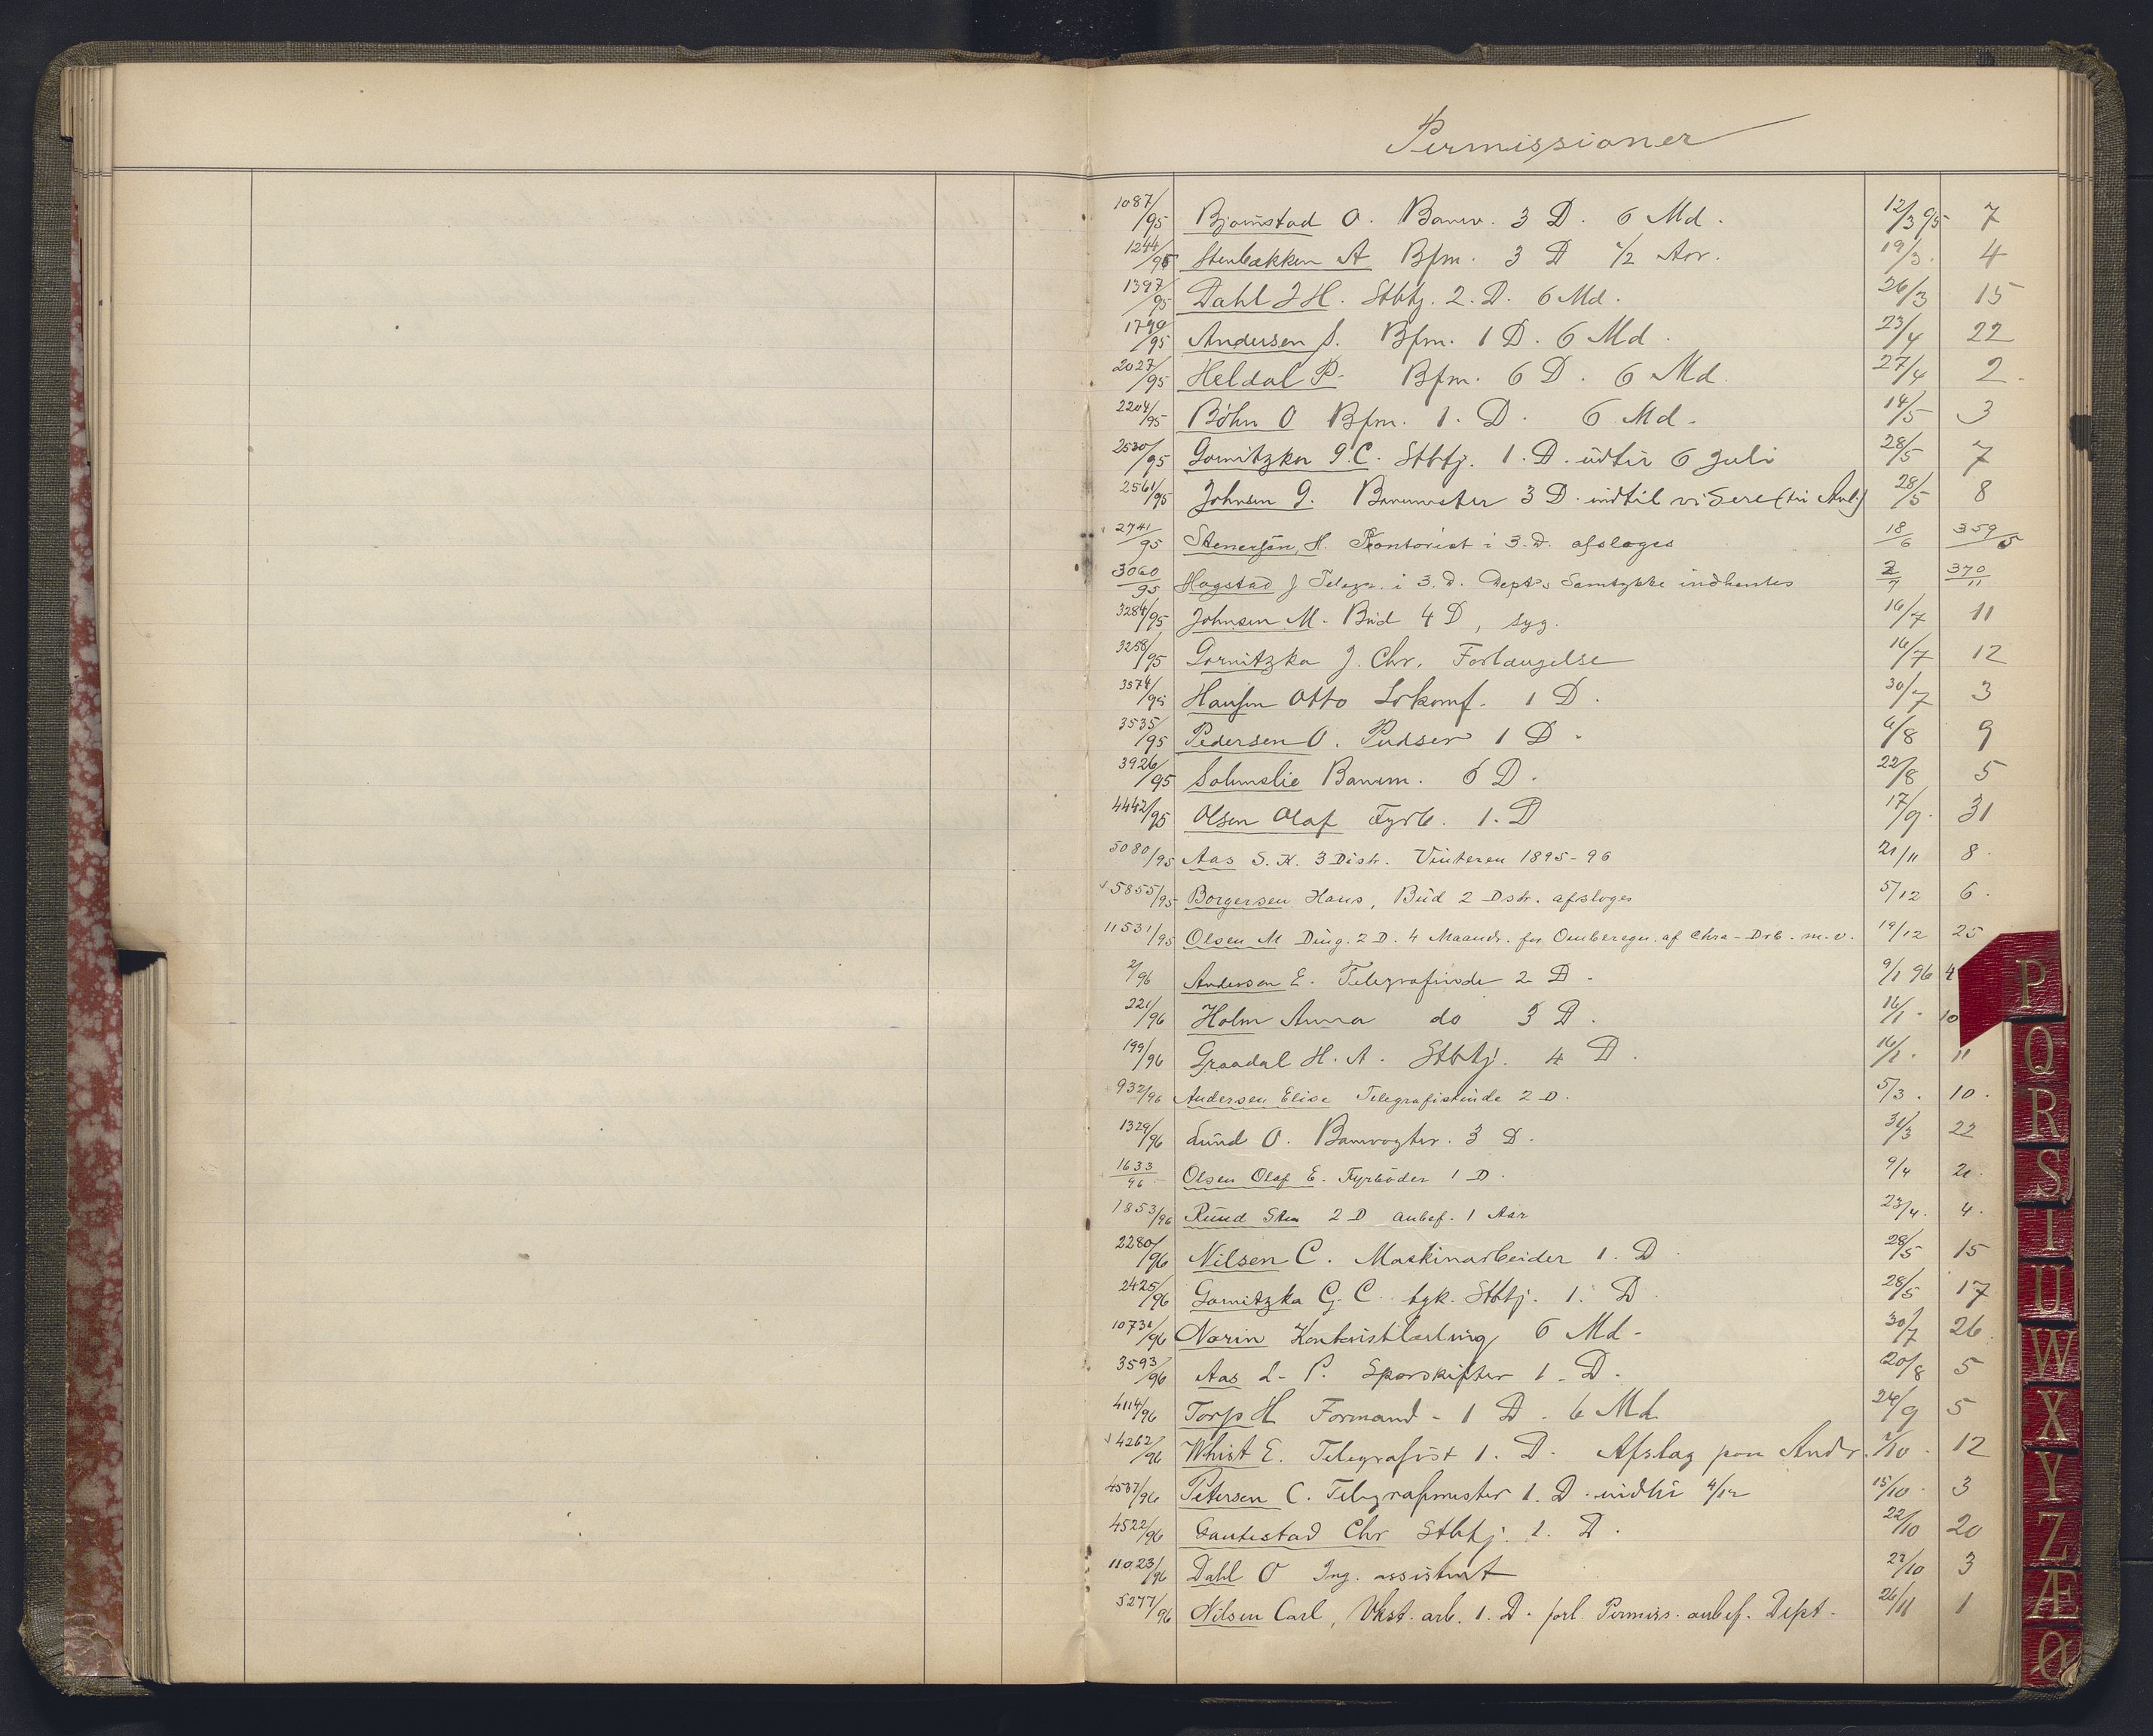 Permissioner
1087/95 Bjørnstad O. Banev. 3 D. 6 Md. 12/3 95 7
1244/95 Stenbækken A Bfm. 3 D 1/2 Aar. 19/3. 4
1397/95 Dahl J H. Stbtj. 2. D. 6 Md. 26/3 15
1749/95 Andersen S. Bfm. 1 D. 6 Md. 23/4 22
2027/95 Heldal P. Bfm. 6 D. 6 Md. 27/4 2.
2204/95 Böhn O Bfm. 1. D. 6 Md. 14/5 3
2530/95 Gornitzka G. C. Stbtj. 1. D. indtil 6 Juli 28/5 7
2561/95 Johnsen G. Banemester 3 D. indtil videre (tri Anl.) 28/5 8
2741/95 Stenersen, H. Kontorist i 3. D. afslages 18/6 359/5
3060/95 Hagstad J Telegr. i 3. D. Dept's Samtykke indhentes 2/7 370/11
3284/95 Johnsen M. Bud 4 D, syg. 16/7 11
3258/95 Gornitzka J. Chr. Forlængelse 16/7 12
3574/95 Hansen Otto Lokomf. 1 D. 30/7 3
3535/95 Pedersen O. Pudser 1 D. 6/8 9
3926/95 Solumslie Banem. 6 D. 22/8 5
4442/95 Olsen Olaf Fyrb. 1. D 17/9. 31
5080/95 Aas S. K. 3 Distr. Vinteren 1895-96 21/11 8.
5855/95 Borgersen Hans, Bud 2 Dstr. afsloges 5/12 6.
11531/95 Olsen M Ding. 2 D. 4 Maaneds. for Omberegn. af Chra-Drb. m. v. 19/12 25
2/96 Andersen E. Telegrafinde 2 D. 9/1 96 4
221/96 Holm Anna do 3 D. 16/1. 10
199/96 Graadal H. A. Stbtj. 4 D. 16/1. 11
932/96 Andersen Elise Telegrafistinde 2 D. 5/3. 10.
1329/96 Lund O. Banevogter. 3 D. 31/3 22
1633/96 Olsen Olaf E. Fyrbøder 1 D. 9/4 21.
1853/96 Ruud Sten 2 D anbef. 1 Aar 23/4. 4.
2280/96 Nilsen C. Maskinarbeider 1. D 28/5 15
2425/96 Gornitzka G. C. tgk. Stbtj. 1. D. 28/5 17
10731/96 Norin Kontoristlærling 6 Md. 30/7 26
3593/96 Aas L. P. Sporskifter 1. D. 20/8 5
4114/96 Torp H Formand - 1 D. 6 Md. 24/9 5
4262/96 Whist E. Telegrafist 1. D. Afslag paa Andr. 1/10. 12
4537/96 Petersen C. Telegrafmester 1. D. indtil 4/12 15/10. 3
4522/96 Gautestad Chr Stbtj. 1. D. 22/10 20
11023/96 Dahl O Ing. assistent 22/10 3
5277/96 Nilsen Carl, Vkst. arb. 1. D. forl. Permiss. anbef. Dept. 26/11 1
P
Q
R
S
T
U
W
X
Y
Z
Æ
Ø